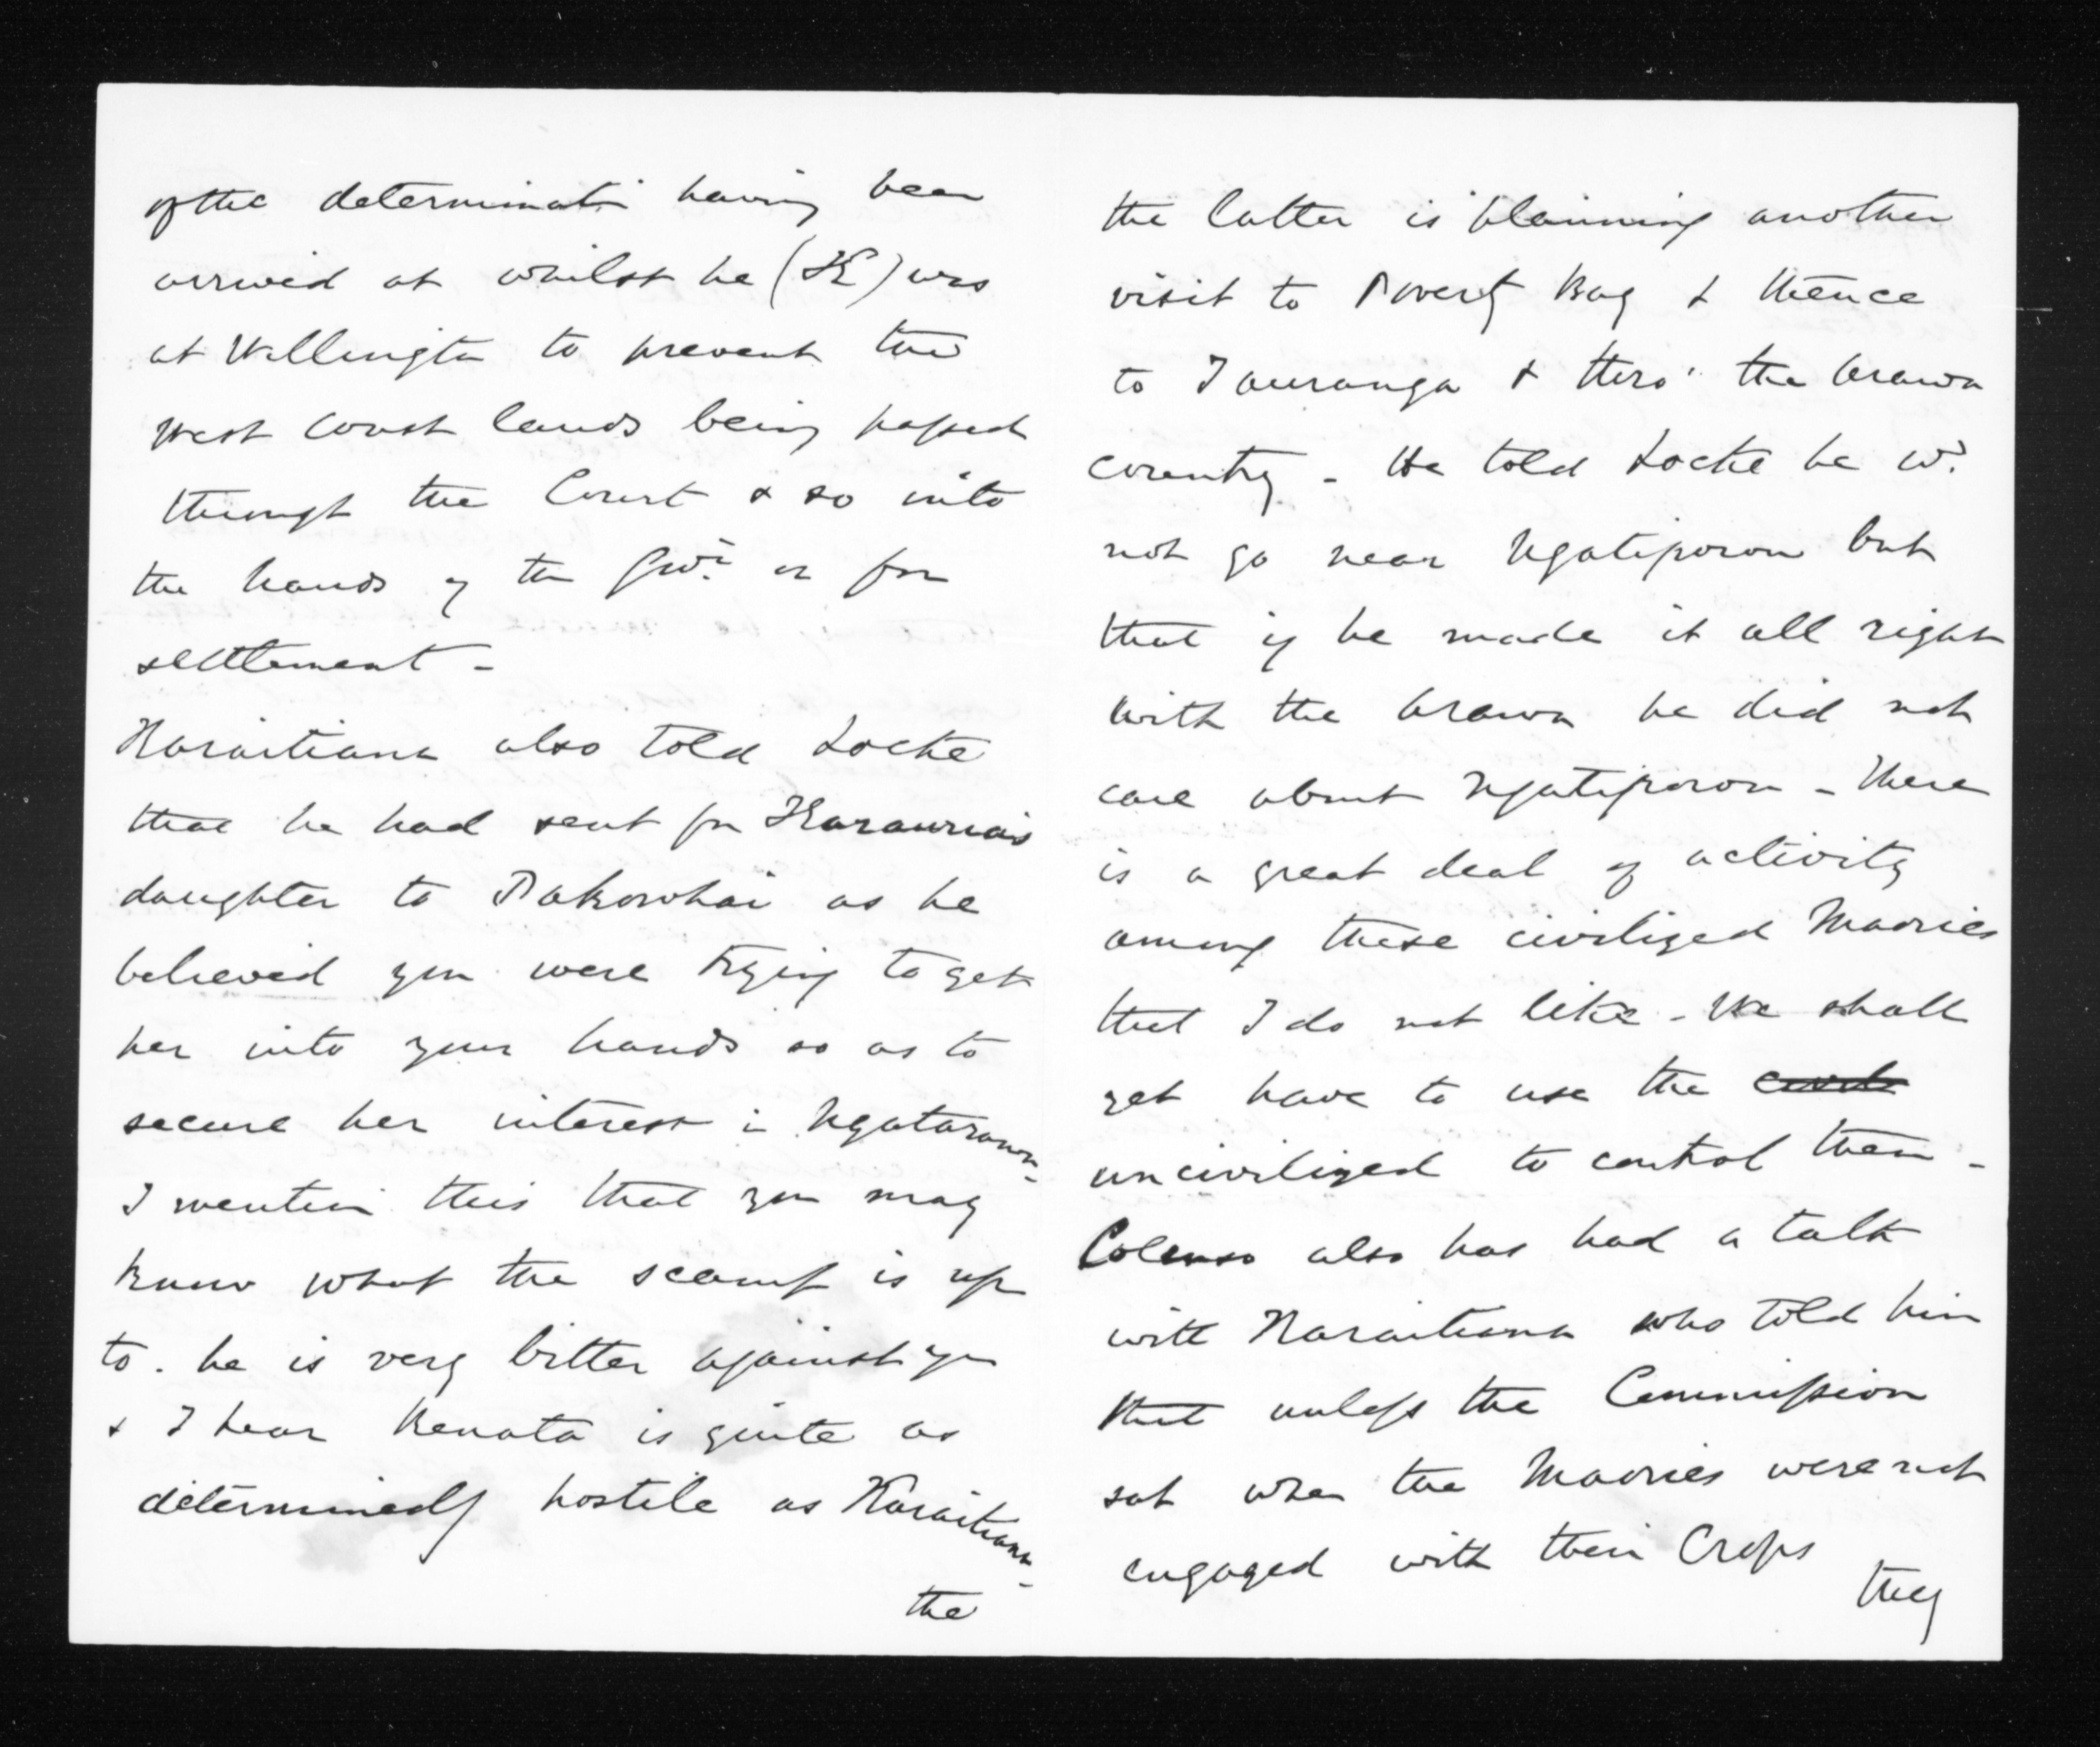 of the determinatn having been
arrived at whilst he (K) was
at Wellington to prevent the
West Coast lands being passed
through the Court & so into
the hands of the Govt or for
settlement -
Karaitiana also told Locke
that he had sent for Karauria's
daughter to Pakowhai as he
believed you were trying to get
her into your hands so as to
secure her interest in Ngatarawa -
I mention this that you may
know what the scamp is up
to. he is very bitter against you
& I hear Renata is quite as
determinedly hostile as Karaitiana -
the
the latter is planning another
visit to Poverty Bay & thence
to Tauranga & thro' the Arawa
country - He told Locke he wd
not go near Ngatiporou but
that if he made it all right
with the Arawa he did not
care about Ngatiporou - There
is a great deal of activity
among these civilized Maories
that I do not like - We shall
yet have to use the
uncivilized to control them -
Colenso also has had a talk
with Karaitiana who told him
that unless the Commission
sat when the Maories were not
engaged with their Crops
they